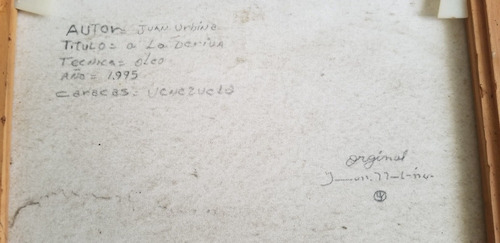 AUTOR= JUAN Urbina
TITULO= a La Deriva
Tecnica= óleo
AÑO= 1.995
caracas= venezuela
orginal